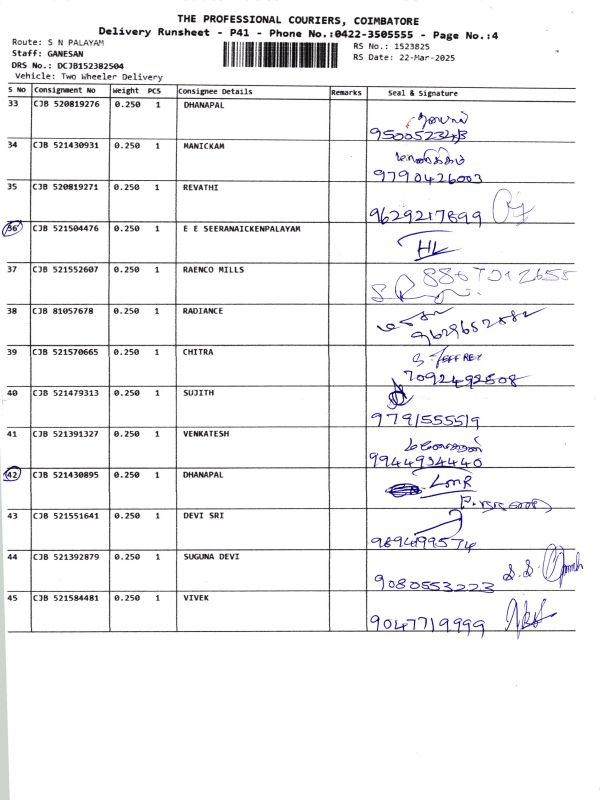 THE PROFESSIONAL COURIERS, COIMBATORE
Delivery Runsheet - P41 - Phone No.:0422-3505555 - Page No.:4
Route: S N PALAYAM
RS No.: 1523825
Staff: GANESAN
RS Date: 22-Mar-2025
DRS No.: DCJB152382504
Vehicle: Two Wheeler Delivery
S No Consignment No Weight PCS Consignee Details Remarks Seal & Signature
33 CJB 520819276 0.250 1 DHANAPAL
34 CJB 521430931 0.250 1 MANICKAM
மாணிக்கம்
9790426003
35 CJB 520819271 0.250 1 REVATHI
9629217899
36 CJB 521504476 0.250 1 E E SEERANAICKENPALAYAM
HL
37 CJB 521552607 0.250 1 RAENCO MILLS
38 CJB 81057678 0.250 1 RADIANCE
39 CJB 521570665 0.250 1 CHITRA
S. JEFFREY
7092492508
40 CJB 521479313 0.250 1 SUJITH
9791555519
41 CJB 521391327 0.250 1 VENKATESH
9944934440
42 CJB 521430895 0.250 1 DHANAPAL
43 CJB 521551641 0.250 1 DEVI SRI
9694199574
44 CJB 521392879 0.250 1 SUGUNA DEVI
9080553223 S.S.
45 CJB 521584481 0.250 1 VIVEK
9047719999